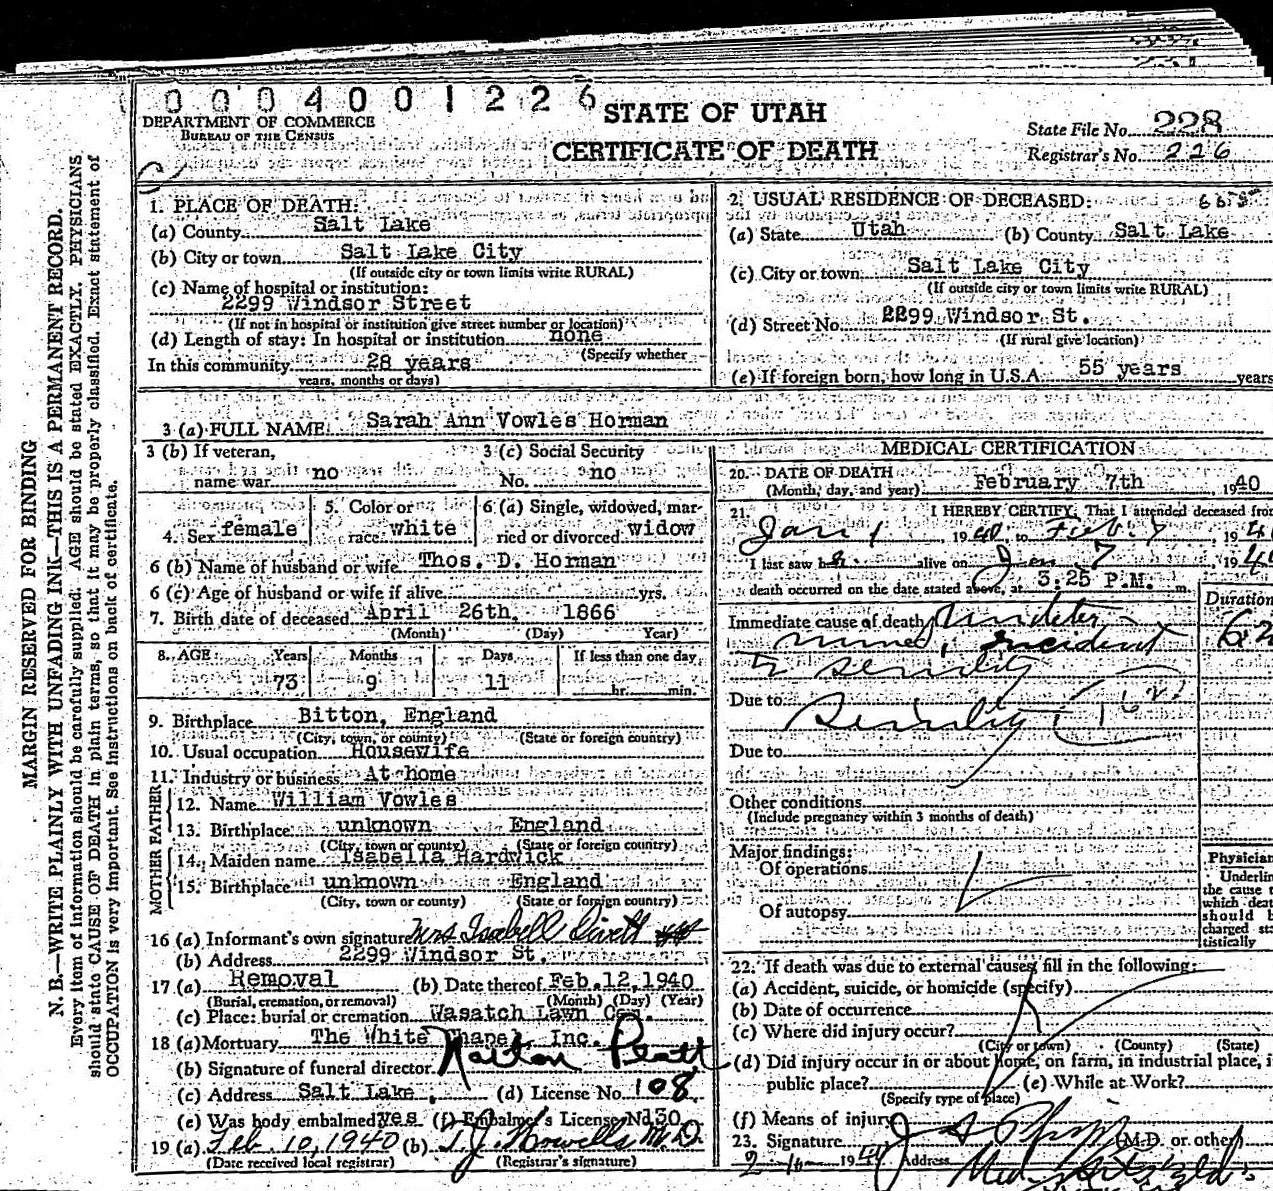 0004001226
STATE OF UTAH
CERTIFICATE OF DEATH
DEPARTMENT OF COMMERCE
BUREAU OF THE CENSUS
State File No. 228
Registrar's No. 226
MARGIN RESERVED FOR BINDING
N. B.—WRITE PLAINLY WITH UNFADING INK—THIS IS A PERMANENT RECORD.
Every item of information should be carefully supplied. AGE should be stated EXACTLY. PHYSICIANS
should state CAUSE OF DEATH in plain terms, so that it may be properly classified. Exact statement of
OCCUPATION is very important. See instructions on back of certificate.
1. PLACE OF DEATH:
(a) County Salt Lake
(b) City or town Salt Lake City
(If outside city or town limits write RURAL)
(c) Name of hospital or institution:
2299 Windsor Street
(If not in hospital or institution give street number or location)
(d) Length of stay: In hospital or institution none
(Specify whether
In this community 28 years
years, months or days)
2. USUAL RESIDENCE OF DECEASED:
(a) State Utah (b) County Salt Lake
(c) City or town Salt Lake City
(If outside city or town limits write RURAL)
(d) Street No. 2299 Windsor St.
(If rural give location)
(e) If foreign born, how long in U.S.A. 55 years years
3 (a) FULL NAME Sarah Ann Vowles Horman
3 (b) If veteran, name war no
3 (c) Social Security No. no
4. Sex female
5. Color or race white
6 (a) Single, widowed, married or divorced widow
6 (b) Name of husband or wife Thos. D. Horman
6 (c) Age of husband or wife if alive yrs.
7. Birth date of deceased April 26th, 1866
(Month) (Day) Year)
8. AGE: Years Months Days If less than one day
73 9 11 hr. min.
9. Birthplace Bitton, England
(City, town, or county) (State or foreign country)
10. Usual occupation Housewife
11. Industry or business At home
FATHER
12. Name William Vowles
13. Birthplace unknown England
(City, town or county) (State or foreign country)
MOTHER
14. Maiden name Isabella Hardwick
15. Birthplace unknown England
(City, town or county) (State or foreign country)
16 (a) Informant's own signature Mrs Isabell Divett
(b) Address 2299 Windsor St.
17 (a) Removal (b) Date thereof Feb. 12, 1940
(Burial, cremation, or removal) (Month) (Day) (Year)
(c) Place: burial or cremation Wasatch Lawn Cem.
18 (a) Mortuary The White Chapel, Inc.
(b) Signature of funeral director Platt
(c) Address Salt Lake, (d) License No. 108
(e) Was body embalmed yes (f) Embalmer's License No 130
19 (a) Feb. 10, 1940 (b) T. J. Howells, M.D.
(Date received local registrar) (Registrar's signature)
MEDICAL CERTIFICATION
20. DATE OF DEATH
(Month, day, and year) February 7th, 1940
21. I HEREBY CERTIFY, That I attended deceased from
Jan 1, 1940, to Feb. 7, 194
I last saw h alive on Jan 7, 194
death occurred on the date stated above, at 3:25 P.M. m.
Duration
Immediate cause of death Undeter-
mined, incident
to senility
Due to Senility (162)
Due to
Other conditions
(Include pregnancy within 3 months of death)
Major findings:
Of operations
Of autopsy
Physician
Underlin
the cause t
which deat
should b
charged sta
tistically
22. If death was due to external causes fill in the following:
(a) Accident, suicide, or homicide (specify)
(b) Date of occurrence
(c) Where did injury occur?
(City or town) (County) (State)
(d) Did injury occur in or about home, on farm, in industrial place, i
public place? (e) While at Work?
(Specify type of place)
(f) Means of injury
23. Signature (M.D. or other)
1940 Address